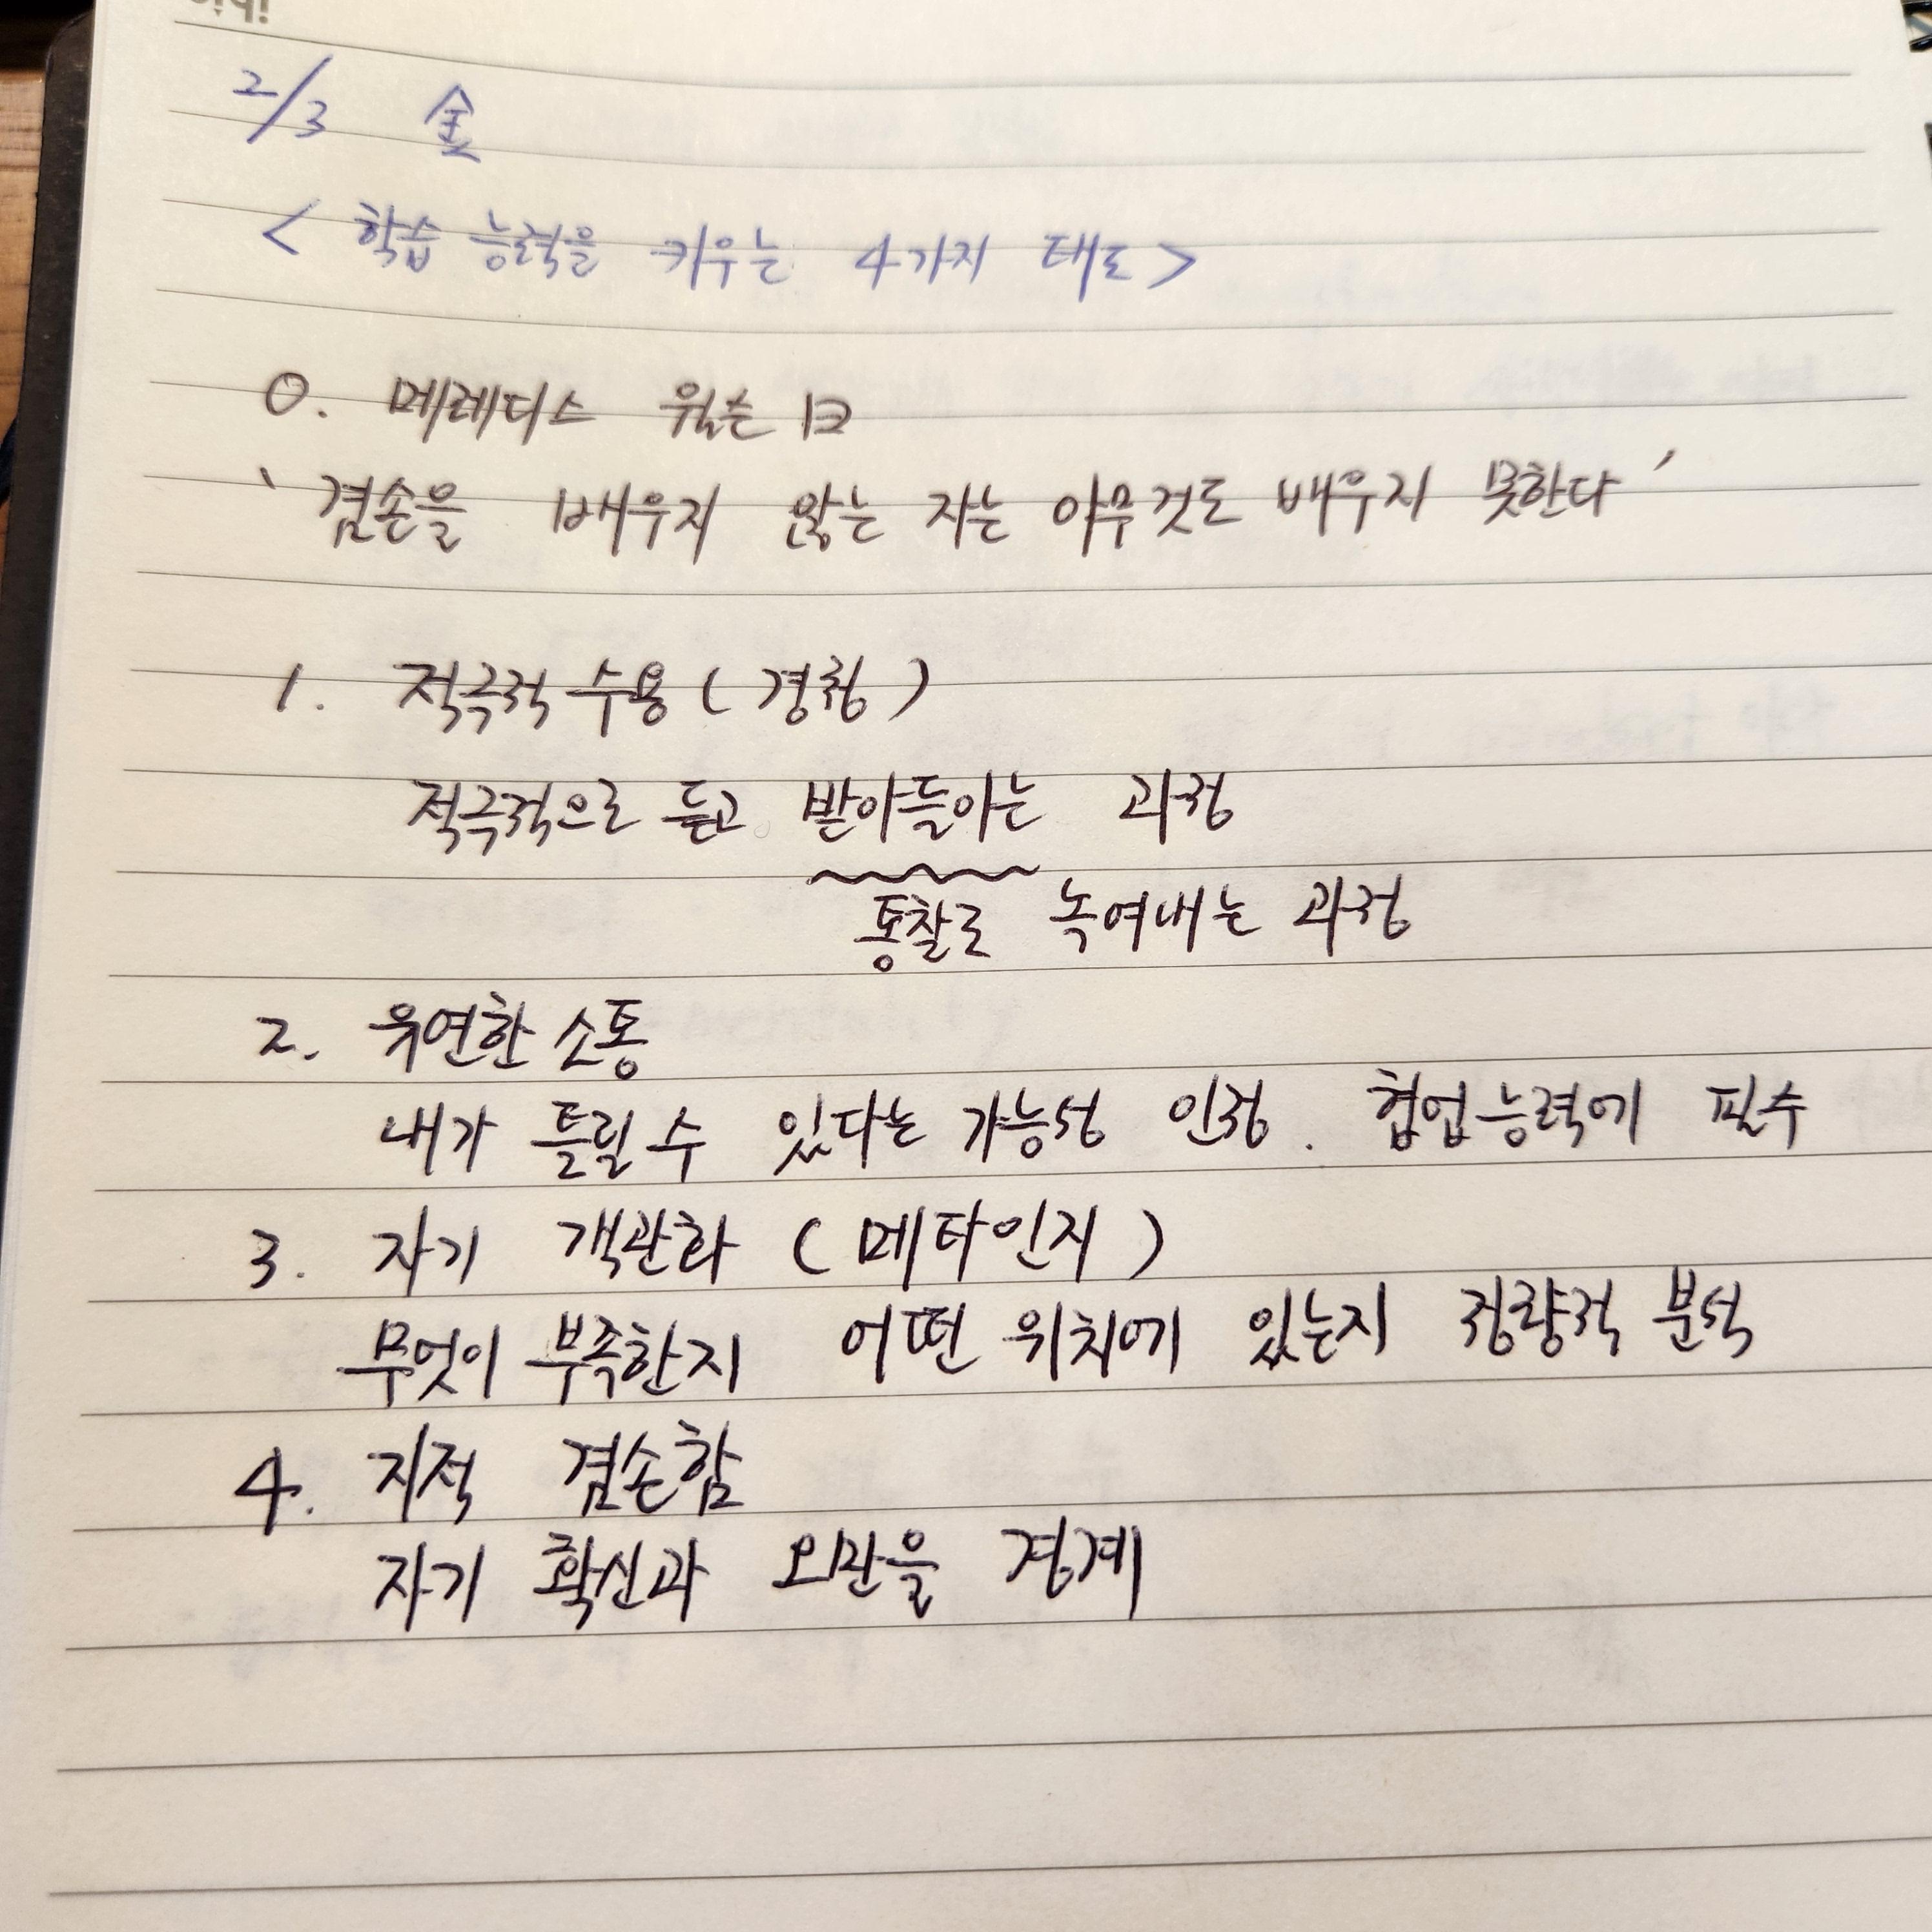 2/3 金
< 학습 능력을 키우는 4가지 태도 >
0. 메레디스 윌슨 曰
' 겸손을 배우지 않는 자는 아무것도 배우지 못한다 '
1. 적극적 수용 ( 경청 )
적극적으로 듣고 받아들이는 과정
통찰로 녹여내는 과정
2. 유연한 소통
내가 틀릴 수 있다는 가능성 인정. 협업능력에 필수
3. 자기 객관화 ( 메타인지 )
무엇이 부족한지 어떤 위치에 있는지 정량적 분석
4. 지적 겸손함
자기 확신과 오만을 경계